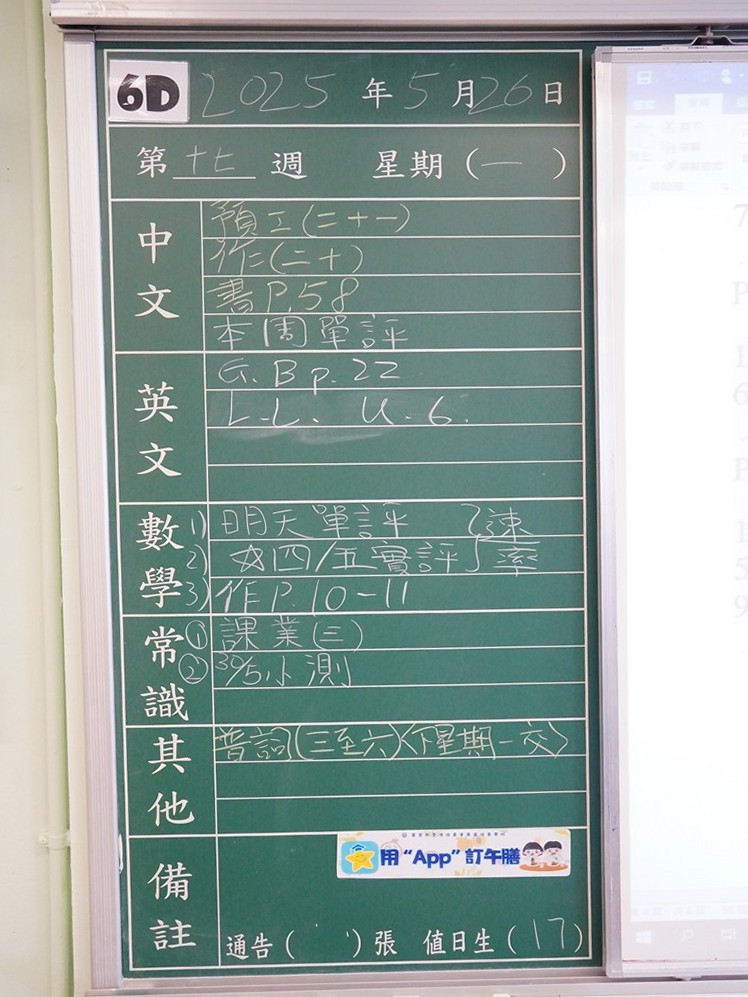 6D 2025年5月26日
第十七週 星期(一)
中文
預工(二十一)
作(二十)
書P.58
本周單評
英文
G.B p.22
L.L. U.6.
數學
1) 明天單評
2) 四/五實評 } 速率
3) 作P.10-11
常識
① 課業(三)
② 30/5小測
其他
普詞(三至六)<下星期一交>
備註
用“App”訂午膳
通告( )張 值日生(17)